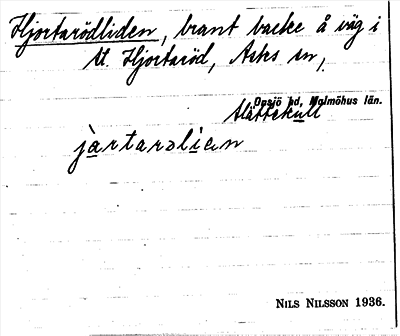 Hjortarödliden, brant backe å väg i
St. Hjortaröd, Asks sn,
Onsjö hd, Malmöhus län.
Slättekull
jartarəliən
NILS NILSSON 1936.